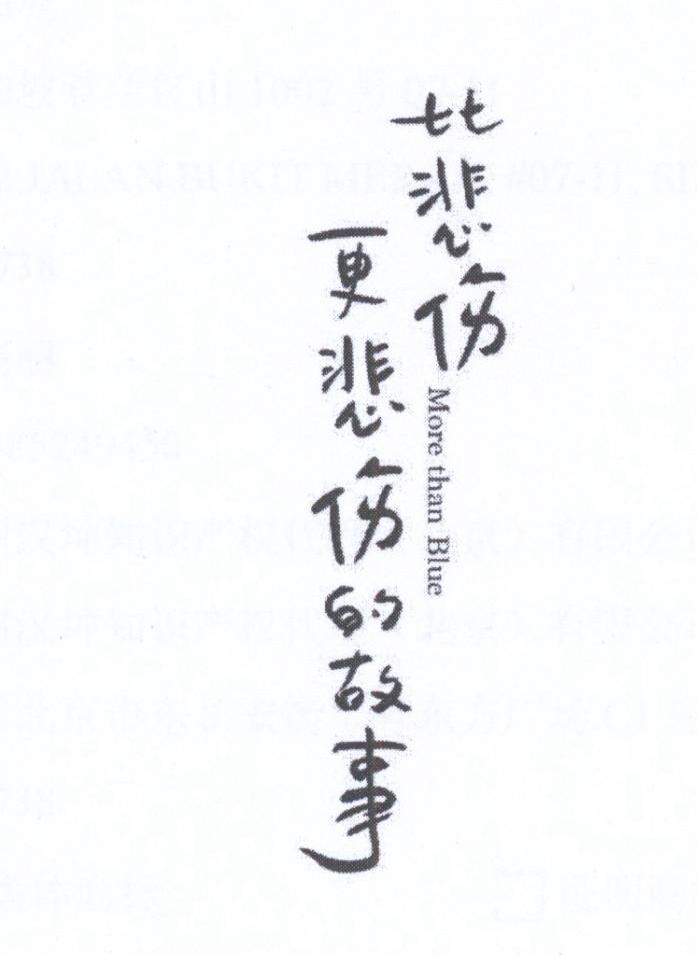 比悲伤
更悲伤的故事
More than Blue